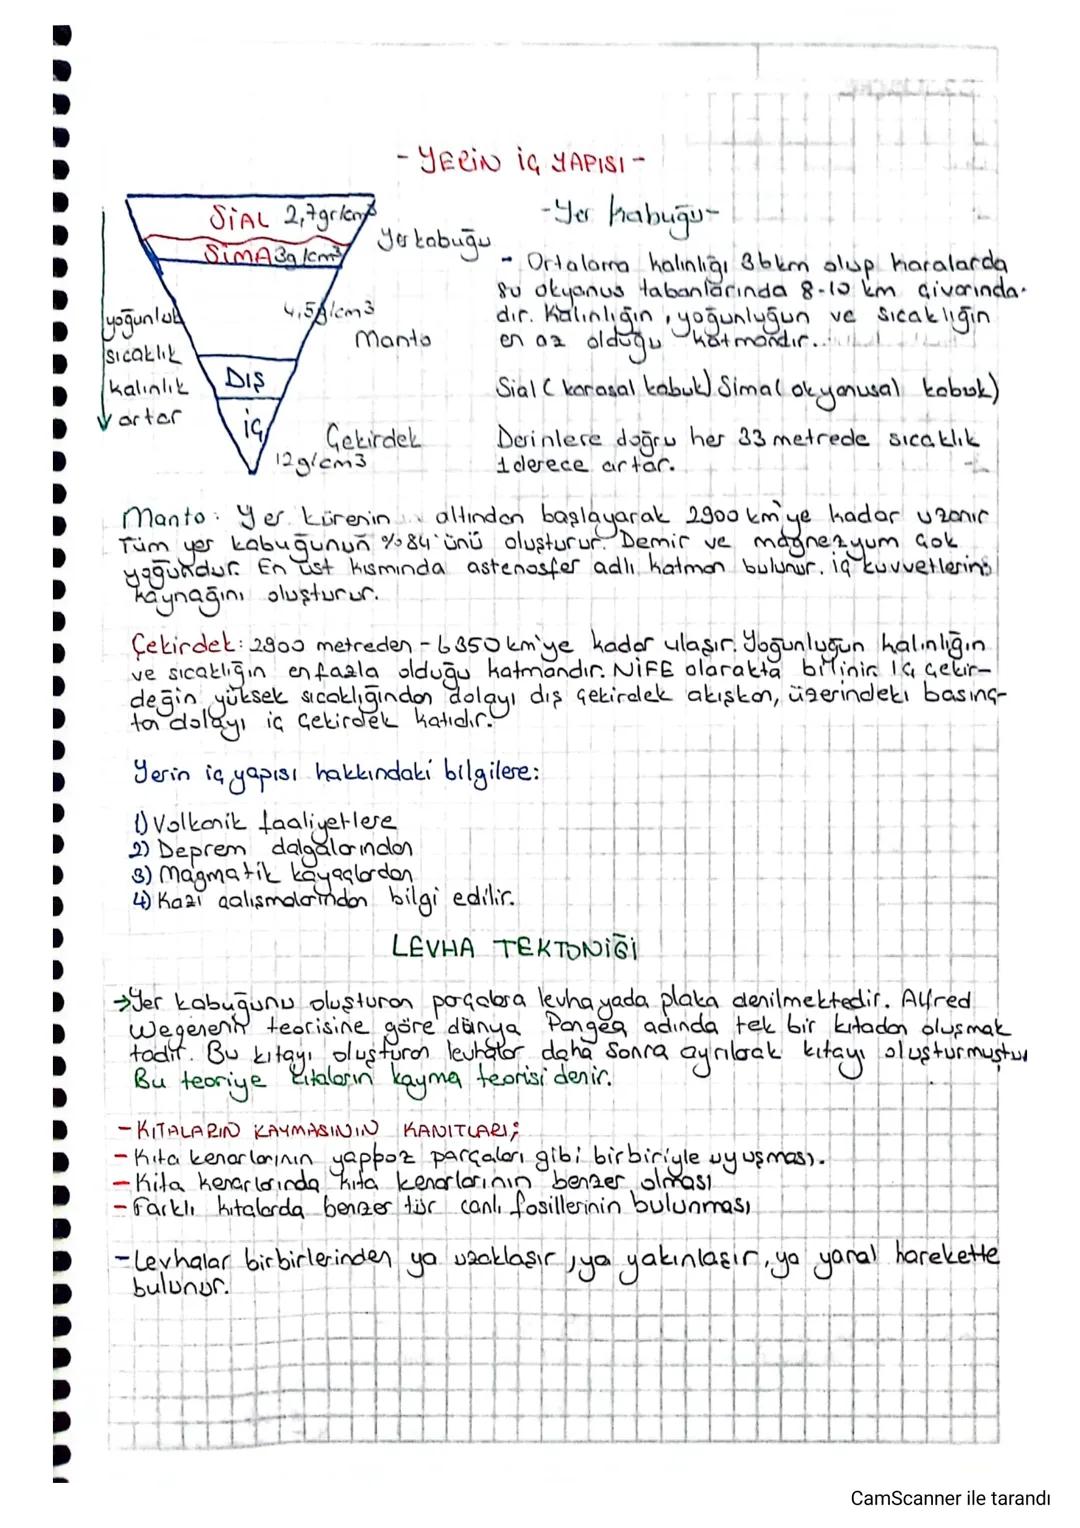 - YERİN İÇ YAPISI -
SİAL 2,7gr/cm3
SİMA 3g/cm3
Yerkabuğu
4,5g/cm3
Manto
DIŞ
İÇ
Çekirdek
12g/cm3
yoğunluk
sıcaklık
kalınlık
artar
-Yer kabuğu-
- Ortalama kalınlığı 36km olup karalarda
okyanus tabanlarında 8-10 km civarında.
dır. Kalınlığın, yoğunluğun ve sıcaklığın
en az olduğu katmandır..
Sial ( karasal kabuk) Sima( okyanusal kabuk)
Derinlere doğru her 33 metrede sıcaklık
1derece artar.
Manto: Yer kürenin altından başlayarak 2900 km'ye kadar uzanır
Tüm yer kabuğunun %84'ünü oluşturur. Demir ve magnezyum çok
yoğundur. En üst kısmında astenosfer adlı katman bulunur. iç kuvvetlerins
kaynağını oluşturur.
Çekirdek: 2900 metreden - 6350 km'ye kadar ulaşır. Yoğunluğun kalınlığın
ve sıcaklığın en fazla olduğu katmandır. NİFE olarakta bilinir. İç çekir-
değin yüksek sıcaklığından dolayı dış çekirdek akışkan, üzerindeki basınç-
tan dolayı iç çekirdek katıdır.
Yerin iç yapısı hakkındaki bilgilere:
1) Volkanik faaliyetlere
2) Deprem dalgalarından
3) Magmatik kayaçlardan
4) Kazı çalışmalarından bilgi edilir.
LEVHA TEKTONİĞİ
→Yer kabuğunu oluşturan parçalara levha yada plaka denilmektedir. Alfred
Wegenerin teorisine göre dünya Pangea adında tek bir kıtadan oluşmak
tadır. Bu kıtayı oluşturan levhalar daha sonra ayrılarak kıtayı oluşturmuştur
Bu teoriye kıtaların kayma teorisi denir.
- KITALARIN KAYMASININ KANITLARI;
- Kıta kenarlarının yapboz parçaları gibi birbiriyle uyuşması.
- Kıta kenarlarında kıta kenarlarının benzer olması
- Farklı kıtalarda benzer tür canlı fosillerinin bulunması
- Levhalar birbirlerinden ya uzaklaşır, ya yakınlaşır, ya yanal harekette
bulunur.
CamScanner ile tarandı